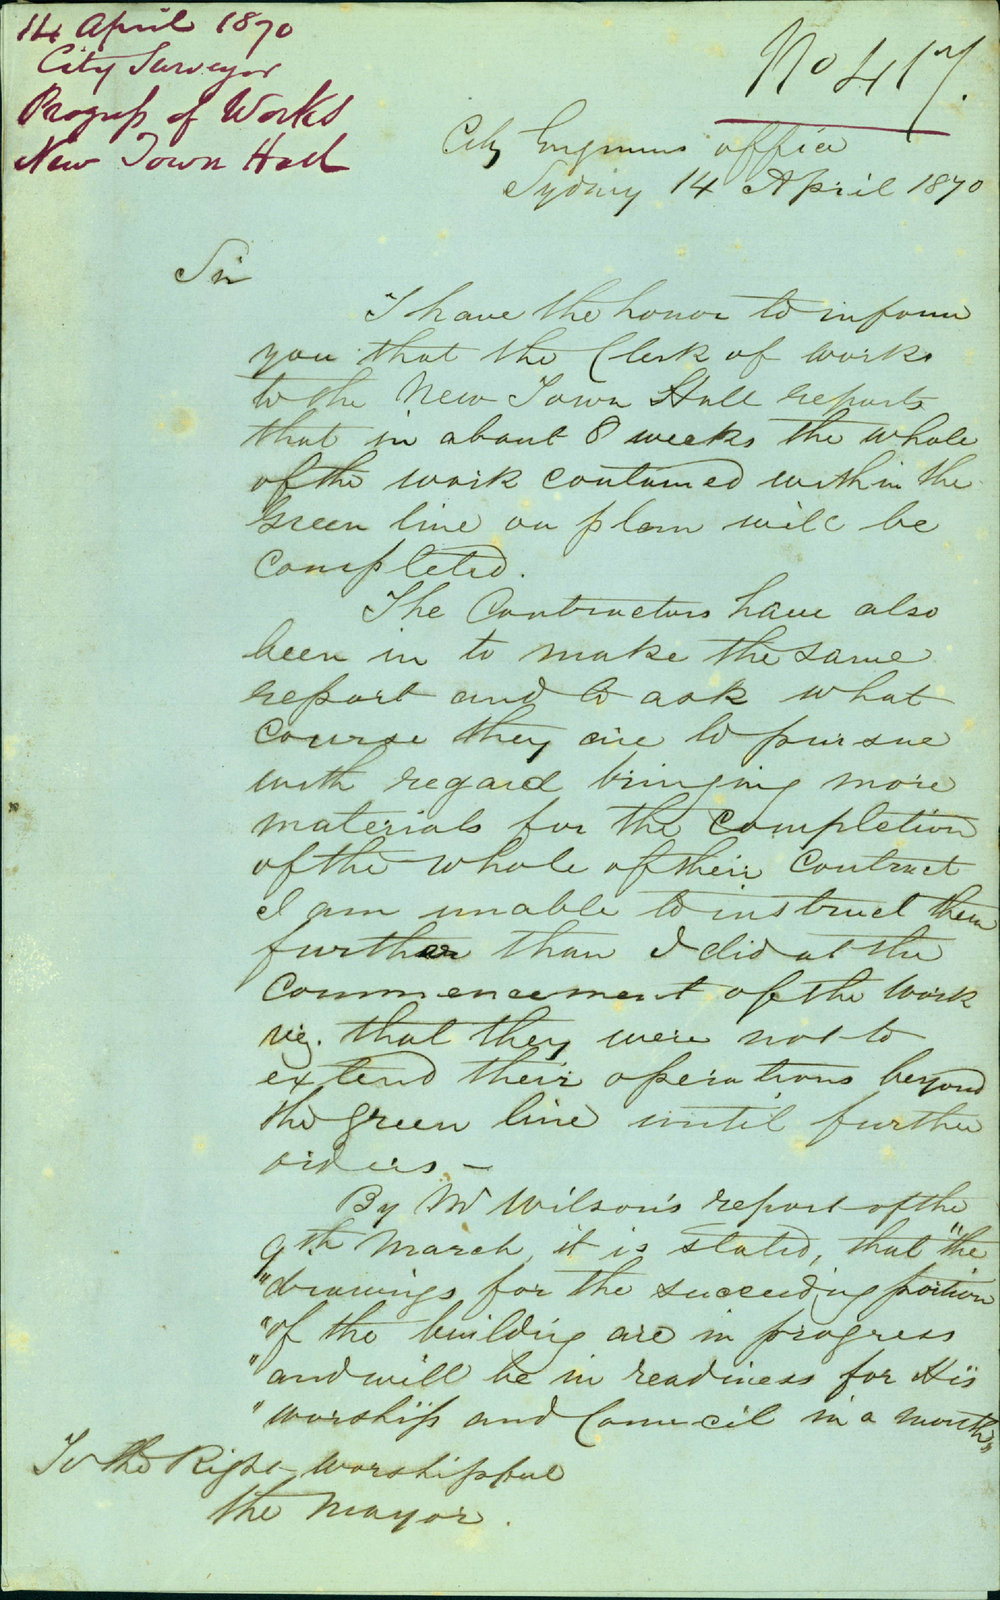 14 April 1870
City Surveyor
Progress of Works
New Town Hall
No 417.
City Engineers office
Sydney 14 April 1870
Sir
I have the honor to inform
you that the Clerk of works
to the New Town Hall reports
that in about 8 weeks the whole
of the work contained within the
Green line on plan will be
completed.
The Contractors have also
been in to make the same
report and to ask what
course they are to pursue
with regard bringing more
materials for the completion
of the whole of their Contract
I am unable to instruct them
further than I did at the
Commencement of the work
viz. that they were not to
extend their operations beyond
the green line until further
orders —
By Mr Wilson's report of the
9th March, it is stated, that "the
"drawings for the succeeding portion
"of the building are in progress
"and will be in readiness for His
"worship and Council in a month"
To the Right Worshipful
the Mayor.